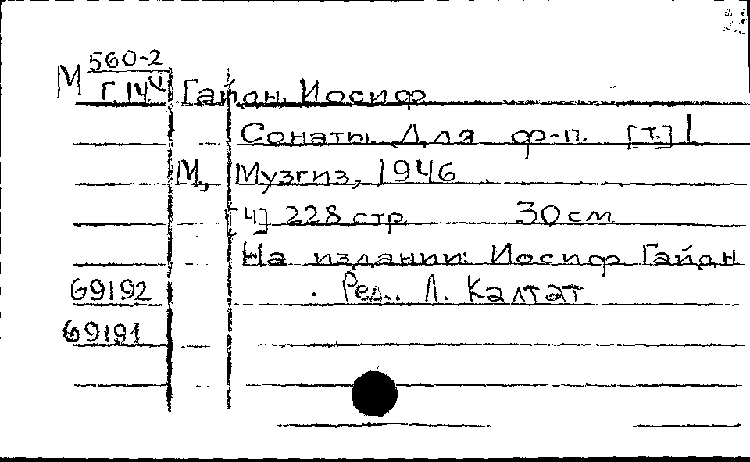 М 560-2
Г.144
Гайдн, Иосиф
Сонаты для ф-п. [т.] 1
М., Музгиз, 1946
[4] 228 стр 30 см
На издании: Иосиф Гайдн
Ред. Л. Калтат
69192
69191